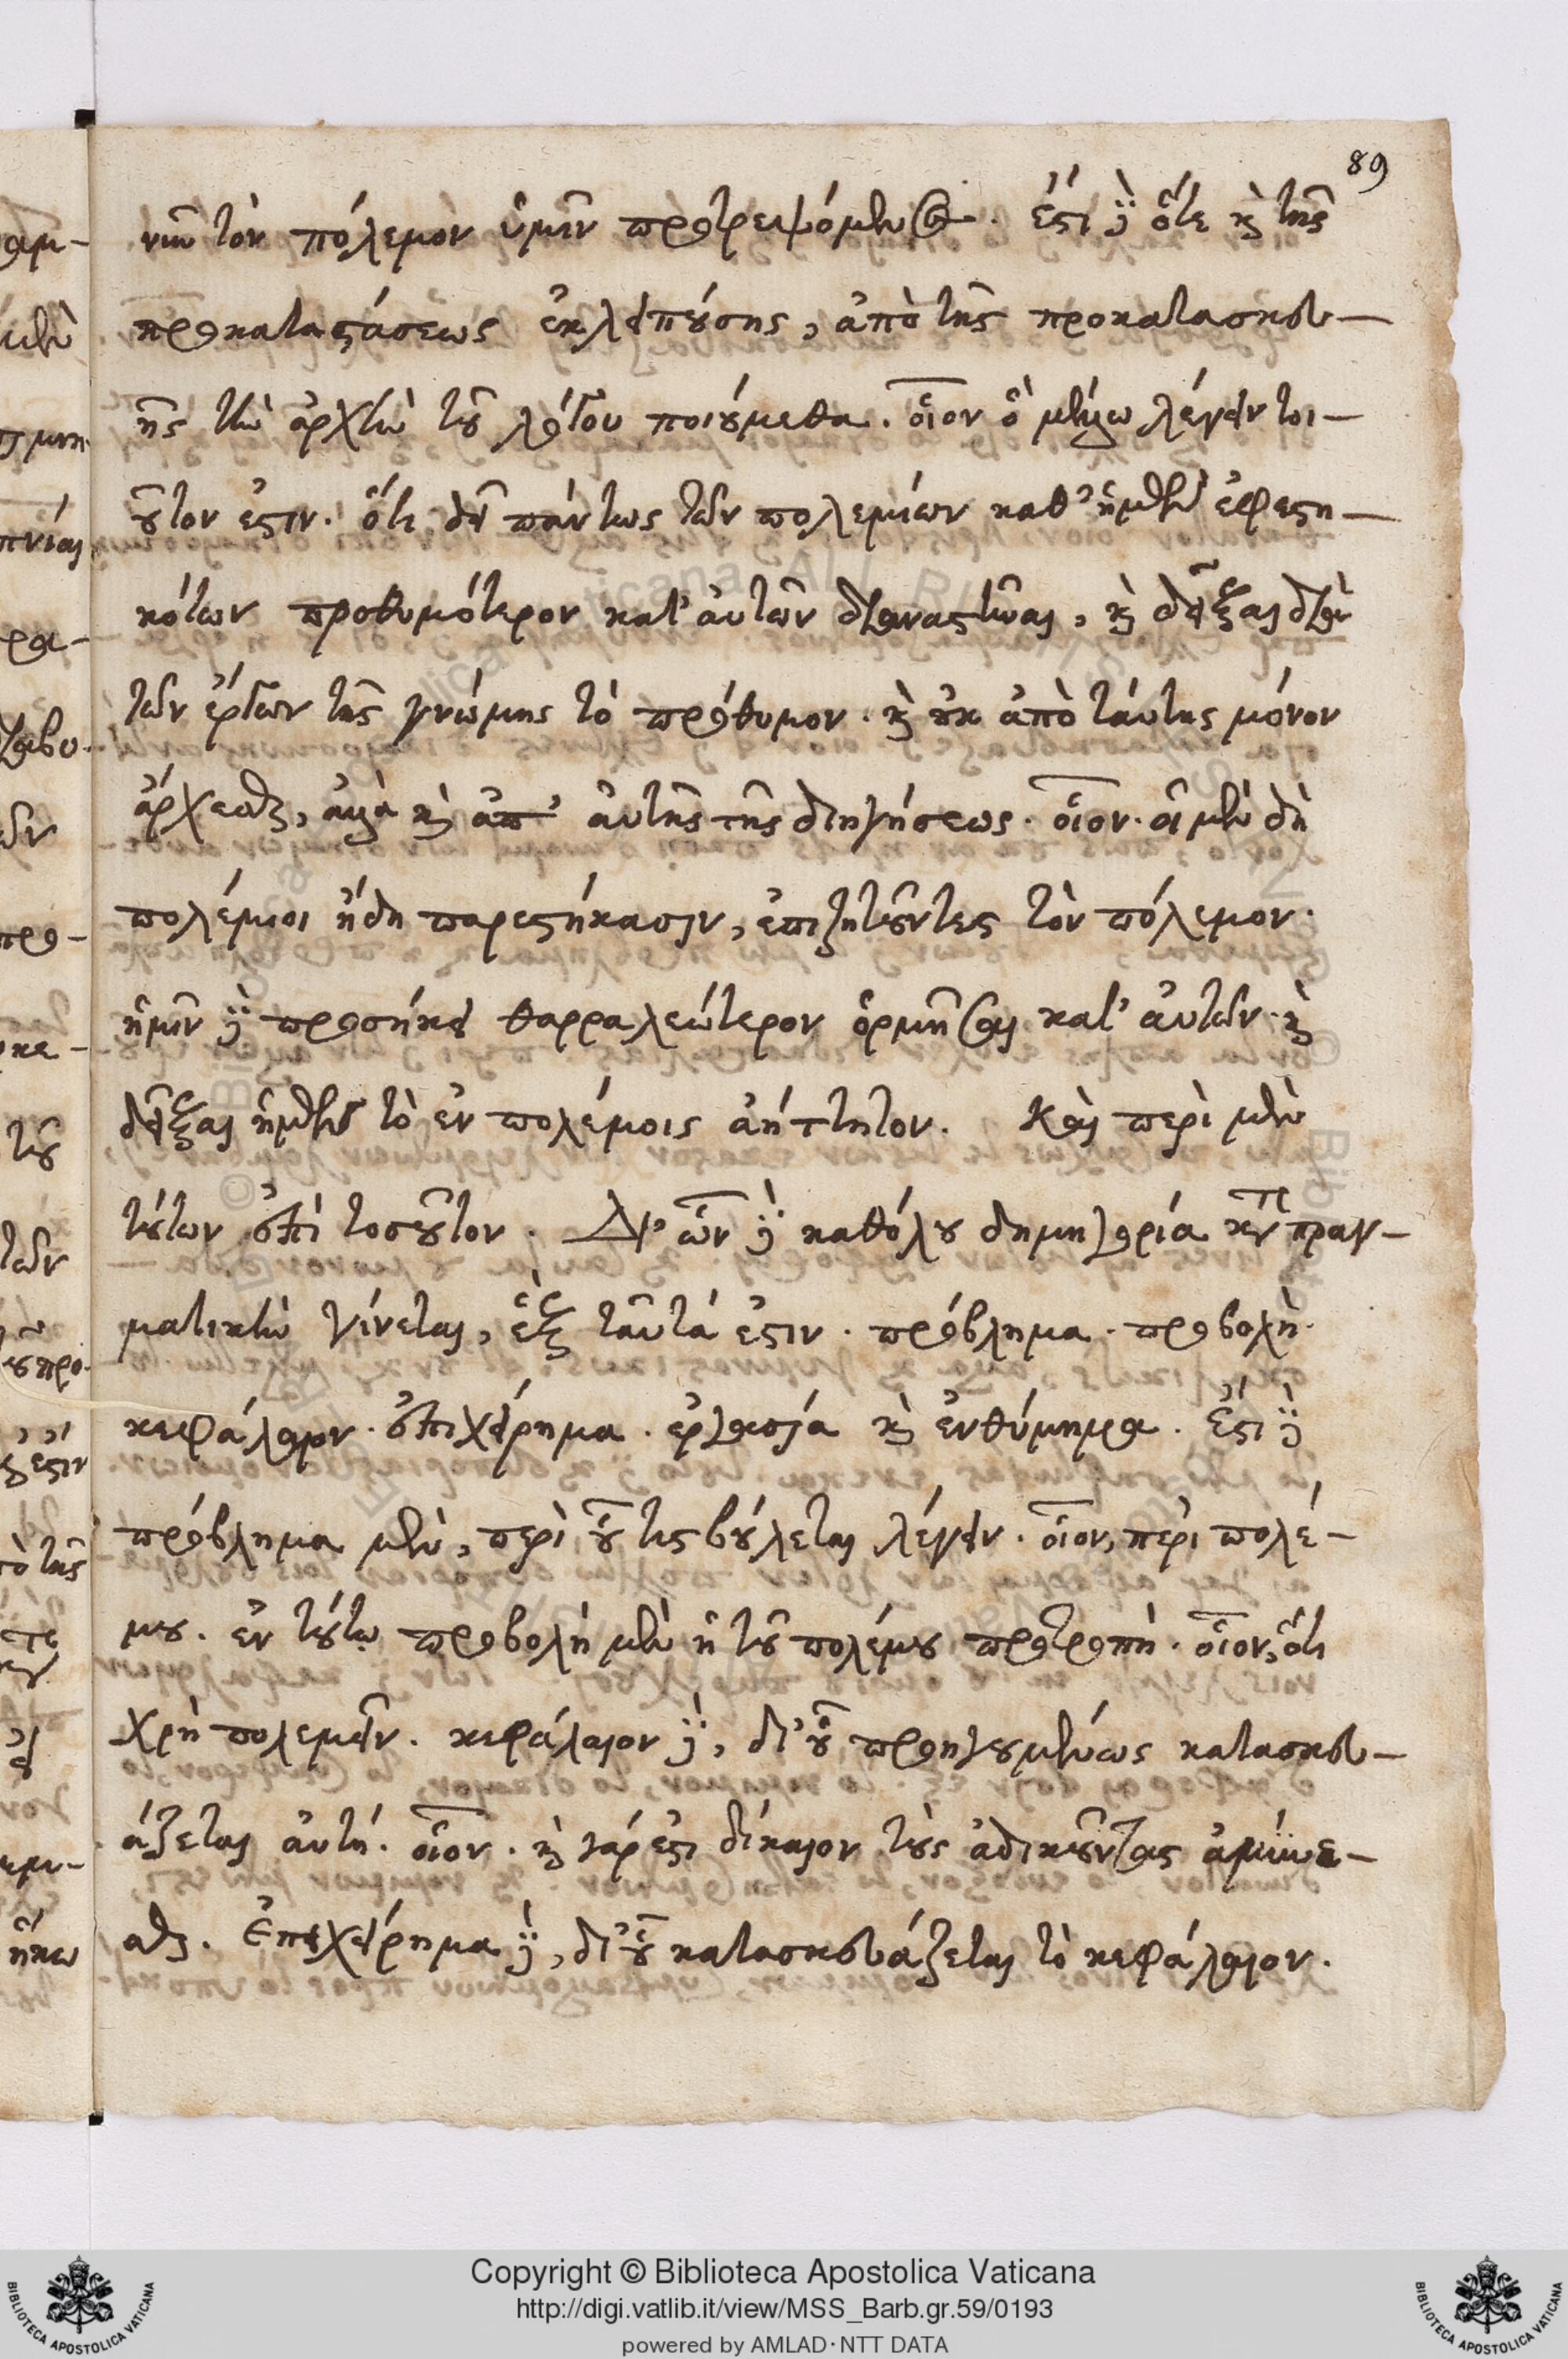 89
νῦν τὸν πόλεμον ὑμῖν προτρεψόμενος. ἔστι δὲ ὅτε καὶ τῆς
προκαταστάσεως ἐκλειπούσης, ἀπὸ τῆς προκατασκευ-
ῆς τὴν ἀρχὴν τοῦ λόγου ποιούμεθα. οἷον ὃ μέλλω λέγειν τοι-
οῦτον ἐστιν. ὅτι δεῖ πάντως τῶν πολεμίων καθ' ἡμῶν ἐφεστη-
κότων προθυμότερον κατ' αὐτῶν διαναστῆναι, καὶ δεῖξαι διὰ
τῶν ἔργων τῆς γνώμης τὸ πρόθυμον. καὶ οὐκ ἀπὸ ταύτης μόνον
ἄρχεσθαι, ἀλλὰ καὶ ἀπ' αὐτῆς τῆς διηγήσεως. οἷον. οἱ μὲν δὴ
πολέμιοι ἤδη παρεστήκασιν, ἐπιζητοῦντες τὸν πόλεμον.
ἡμῖν δὲ προσήκει θαρραλεώτερον ὁρμῆσαι κατ' αὐτῶν. καὶ
δεῖξαι ἡμῶν τὸ ἐν πολέμοις ἀήττητον. Καὶ περὶ μὲν
τούτων ἐπὶ τοσοῦτον. Δι' ὧν δὲ καθόλου δημηγορία κατὰ πραγ-
ματικὴν γίνεται, ἓξ ταῦτά ἐστιν. πρόβλημα. προβολή.
κεφάλαιον. ἐπιχείρημα. ἐργασία καὶ ἐνθύμημα. ἔστι δὲ
πρόβλημα μὲν, περὶ οὗ τις βούλεται λέγειν. οἷον, περὶ πολέ-
μου. ἐν τούτῳ προβολὴ μὲν ἡ τοῦ πολέμου προτροπή. οἷον, ὅτι
χρὴ πολεμεῖν. κεφάλαιον δὲ, δι' οὗ προηγουμένως κατασκευ-
άζεται αὐτή. οἷον. καὶ γάρ ἐστι δίκαιον τοὺς ἀδικοῦντας ἀμύνε-
σθαι. Ἐπιχείρημα δὲ, δι' οὗ κατασκευάζεται τὸ κεφάλαιον.
Copyright © Biblioteca Apostolica Vaticana
http://digi.vatlib.it/view/MSS_Barb.gr.59/0193
powered by AMLAD·NTT DATA
BIBLIOTECA APOSTOLICA VATICANA
BIBLIOTECA APOSTOLICA VATICANA